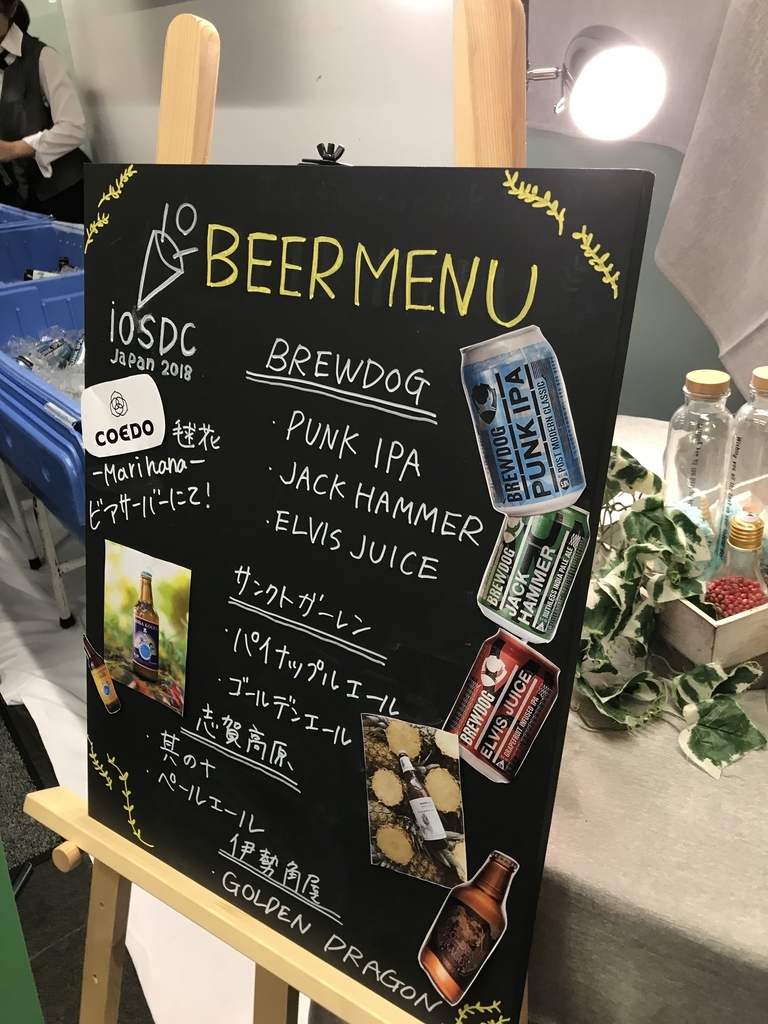 BEER MENU
iOSDC
Japan 2018
COEDO
毬花
-Marihana-
ビアサーバーにて!
BREWDOG
・PUNK IPA
・JACK HAMMER
・ELVIS JUICE
サンクトガーレン
・パイナップルエール
・ゴールデンエール
志賀高原
・其の十
・ペールエール
伊勢角屋
・GOLDEN DRAGON
BREWDOG
PUNK IPA
POST MODERN CLASSIC
BREWDOG
JACK
HAMMER
RUTHLESS INDIA PALE ALE
BREWDOG
ELVIS JUICE
GRAPEFRUIT INFUSED IPA